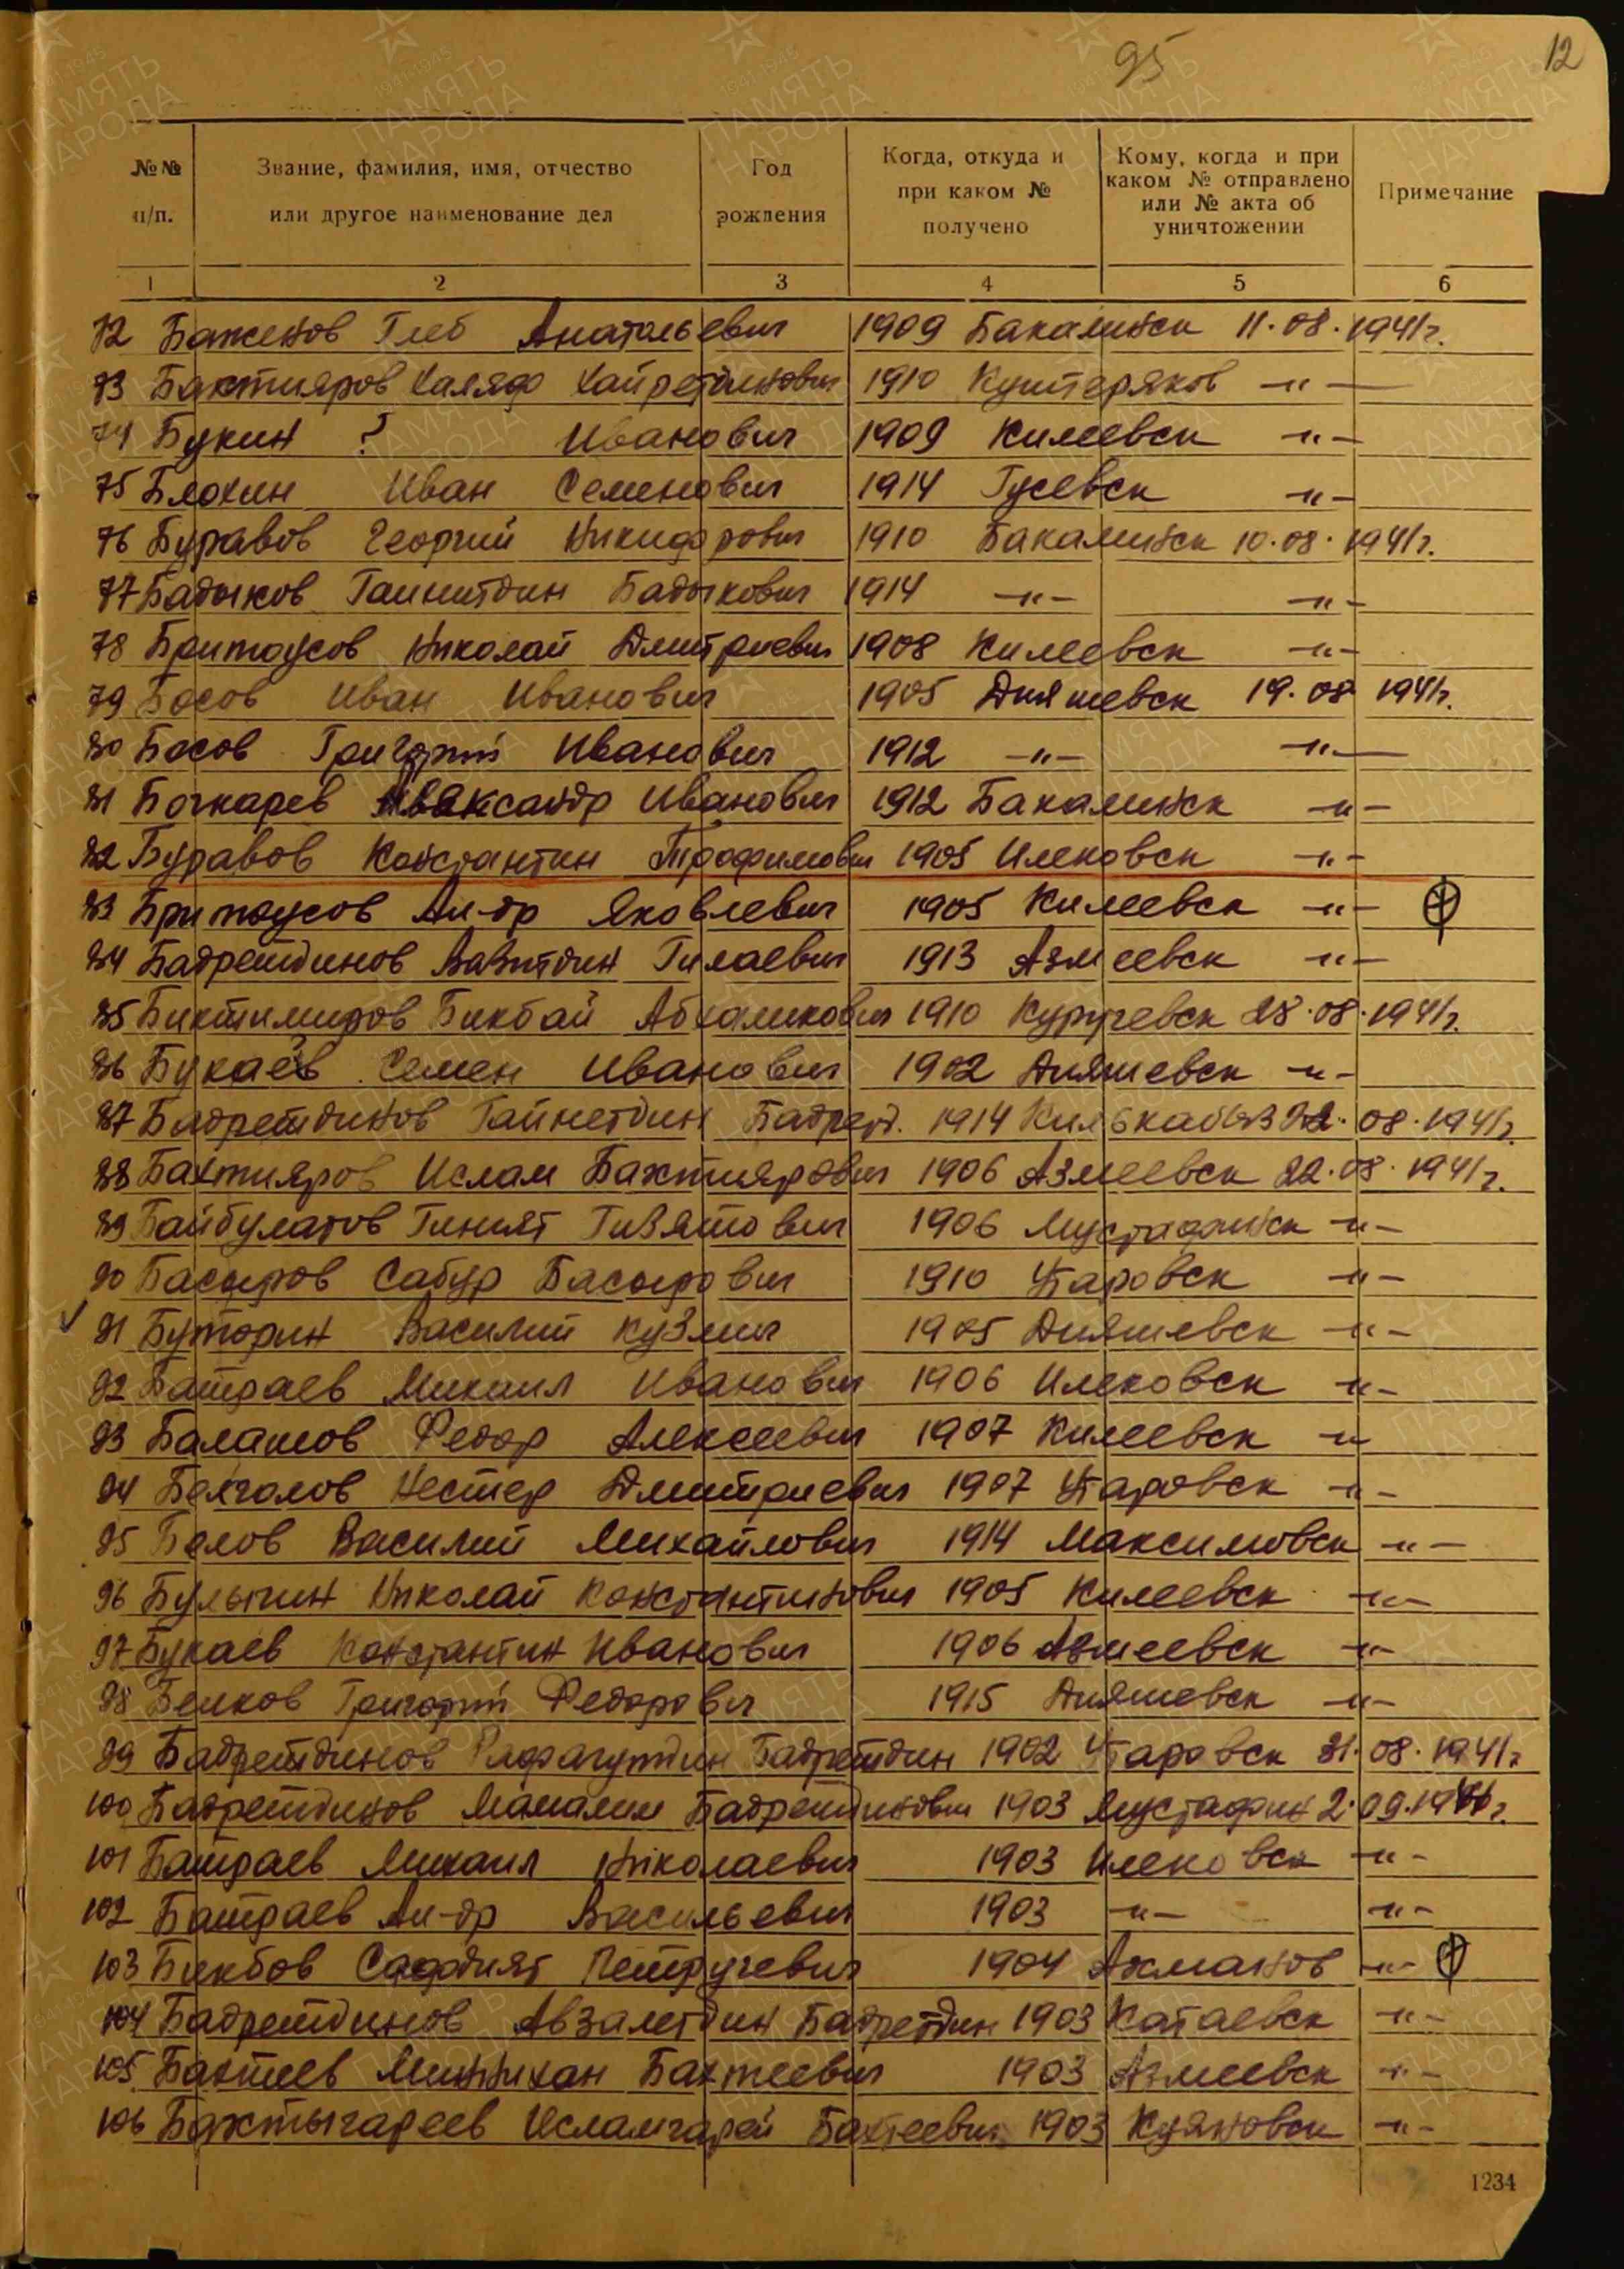 95
12
№№ п/п.
Звание, фамилия, имя, отчество или другое наименование дел
Год рождения
Когда, откуда и при каком № получено
Кому, когда и при каком № отправлено или № акта об уничтожении
Примечание
1 2 3 4 5 6
72 Баженов Глеб Анатольевич 1909 Бакалинск 11.08.1941г.
73 Бактияров Халяф Хайретдинович 1910 Куштеряков -"-
74 Букин ? Иванович 1909 Килеевск -"-
75 Блохин Иван Семенович 1914 Гусевск -"-
76 Буравов Георгий Никифорович 1910 Бакалинск 10.08.1941г.
77 Бадыков Гаинитдин Бадыкович 1914 -"- -"-
78 Бритоусов Николай Дмитриевич 1908 Килеевск -"-
79 Босов Иван Иванович 1905 Дияшевск 19.08 1941г.
80 Босов Григорий Иванович 1912 -"- -"-
81 Бочкарев Александр Иванович 1912 Бакалинск -"-
82 Буравов Константин Трофимович 1905 Илековск -"-
83 Бритоусов Ал-др Яковлевич 1905 Килеевск -"-
84 Бадретдинов Вазитдин Гилаевич 1913 Азмеевск -"-
85 Биктимиров Бикбай Абхаликович 1910 Куручевск 28.08.1941г.
86 Букаев Семен Иванович 1902 Дияшевск -"-
87 Бадретдинов Гайнетдин Бадрет. 1914 22.08.1941г.
88 Бахтияров Ислам Бахтиярович 1906 Азмеевск 22.08.1941г.
89 Байбулатов Гиният Гизятович 1906 Мустафинск -"-
90 Басыров Сабур Басырович 1910 Утаровск -"-
91 Буторин Василий Кузмич 1905 Дияшевск -"-
92 Батраев Михаил Иванович 1906 Илековск -"-
93 Балашов Федор Алексеевич 1907 Килеевск -"-
94 Нестер Дмитриевич 1907 Утаровск -"-
95 Белов Василий Михайлович 1914 Максимовск -"-
96 Булычин Николай Константинович 1905 Килеевск -"-
97 Букаев Константин Иванович 1906 Азмеевск -"-
98 Белков Григорий Федорович 1915 Дияшевск -"-
99 Бадретдинов Бадретдин 1902 Утаровск 31.08.1941г
100 Бадретдинов Мамалим Бадретдинович 1903 Мустафин 2.09.1941г.
101 Батраев Михаил Николаевич 1903 Илековск -"-
102 Батраев Ал-др Васильевич 1903 -"- -"-
103 Бикбов 1904 Ахманов -"-
104 Бадретдинов Авзалетдин Бадретдин 1903 Катаевск -"-
105 Бахтеев Миннихан Бахтеевич 1903 Азмеевск -"-
106 Бахтыгареев Исламгарей Бахтеевич 1903 Куяновск -"-
1234